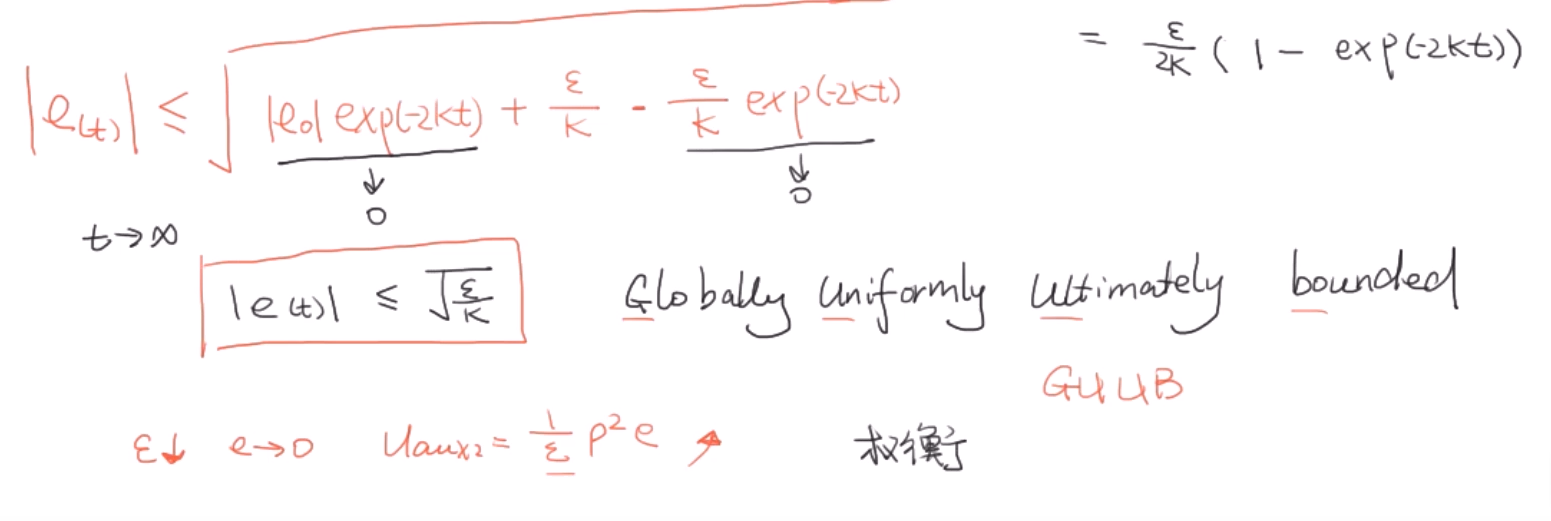 = ε/2K ( 1 - exp(-2Kt))
|e(t)| ≤ √(|e₀| exp(-2Kt) + ε/K - ε/K exp(-2Kt))
↓ ↓
0 0
t→∞
|e(t)| ≤ √(ε/K) Globally Uniformly Ultimately bounded
GUUB
ε↓ e→0 Uaux₂ = 1/ε ρ²e ↗ 权衡